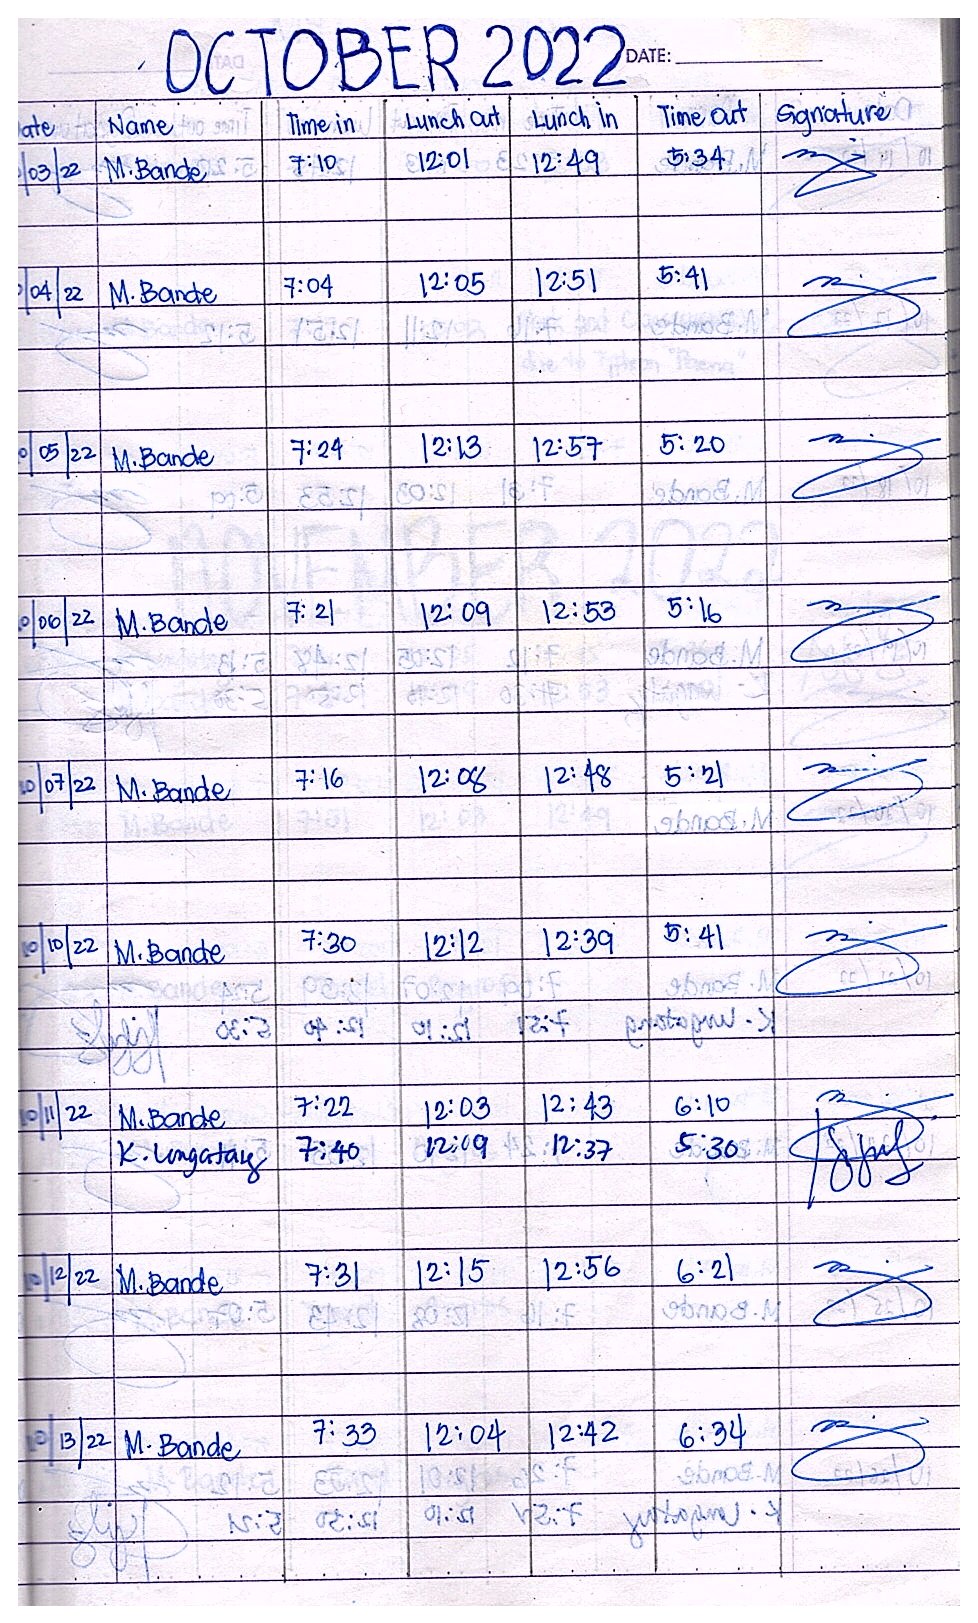 OCTOBER 2022 DATE:
ate Name Time in Lunch Out Lunch In Time Out Signature
/03/22 M. Bande 7:10 12:01 12:49 5:34
/04/22 M. Bande 7:04 12:05 12:51 5:41
0/05/22 M. Bande 7:24 12:13 12:57 5:20
0/06/22 M. Bande 7:21 12:09 12:53 5:16
10/07/22 M. Bande 7:16 12:08 12:48 5:21
10/10/22 M. Bande 7:30 12:12 12:39 5:41
10/11/22 M. Bande 7:22 12:03 12:43 6:10
K. Lungatang 7:40 12:09 12:37 5:30
10/12/22 M. Bande 7:31 12:15 12:56 6:21
10/13/22 M. Bande 7:33 12:04 12:42 6:34